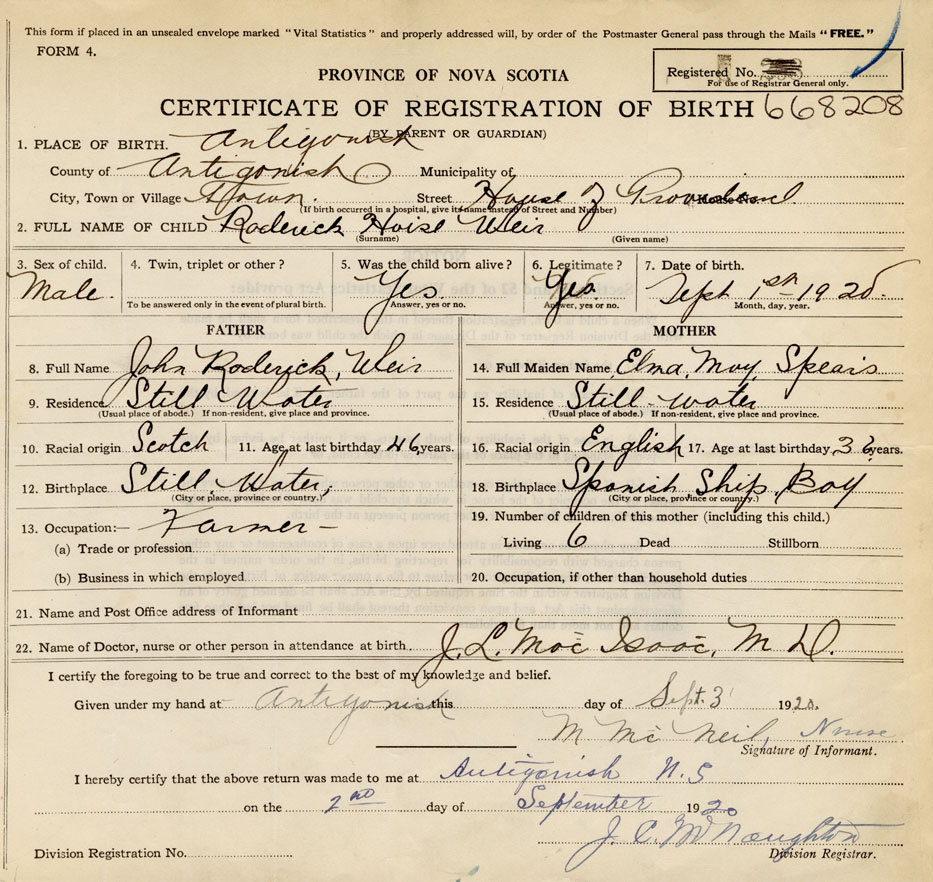 This form if placed in an unsealed envelope marked "Vital Statistics" and properly addressed will, by order of the Postmaster General pass through the Mails "FREE."
FORM 4.
PROVINCE OF NOVA SCOTIA
Registered No.
For use of Registrar General only.
CERTIFICATE OF REGISTRATION OF BIRTH 668208
(BY PARENT OR GUARDIAN)
1. PLACE OF BIRTH. Antigonish
County of Antigonish Municipality of
City, Town or Village Town. Street House of
(If birth occurred in a hospital, give its name instead of Street and Number)
2. FULL NAME OF CHILD Roderick Weir
(Surname) (Given name)
3. Sex of child. 4. Twin, triplet or other? 5. Was the child born alive? 6. Legitimate? 7. Date of birth.
Male. Yes. Yes. Sept 1st 1920.
To be answered only in the event of plural birth. Answer, yes or no. Answer, yes or no. Month, day, year.
FATHER MOTHER
8. Full Name John Roderick, Weir 14. Full Maiden Name Elma May Spears
9. Residence Still Water 15. Residence Still water
(Usual place of abode.) If non-resident, give place and province. (Usual place of abode.) If non-resident, give place and province.
10. Racial origin Scotch 11. Age at last birthday 46 years. 16. Racial origin English 17. Age at last birthday 36 years.
12. Birthplace Still Water, 18. Birthplace Spanish Ship Bay
(City or place, province or country.) (City or place, province or country.)
13. Occupation:— Farmer - 19. Number of children of this mother (including this child.)
(a) Trade or profession Living 6 Dead Stillborn
(b) Business in which employed 20. Occupation, if other than household duties
21. Name and Post Office address of Informant
22. Name of Doctor, nurse or other person in attendance at birth J. L. Mac Isaac, M D.
I certify the foregoing to be true and correct to the best of my knowledge and belief.
Given under my hand at Antigonish this day of Sept. 3 1920.
M Mc Neil, Nurse
Signature of Informant.
I hereby certify that the above return was made to me at Antigonish N. S
on the 2nd day of September 1920
J. C. McNaughton
Division Registration No. Division Registrar.